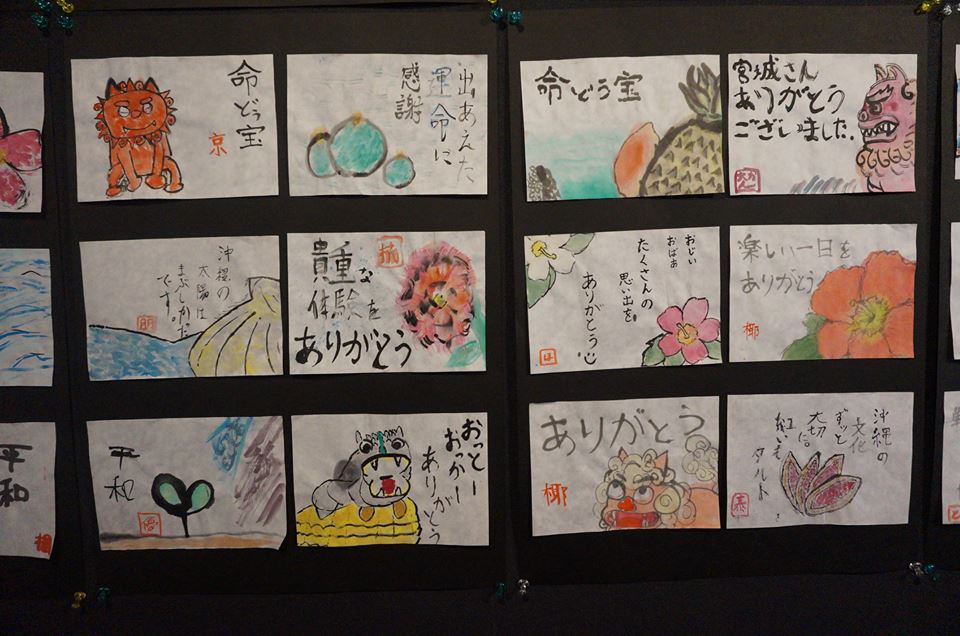 命どぅ宝
京
出あえた
運命に
感謝
命どう宝
宮城さん
ありがとう
ございました。
沖縄の
太陽は
まぶしかった
です。
朋
貴重な
体験を
ありがとう
おじい
おばあ
たくさんの
思い出を
ありがとう
は
楽しい一日を
ありがとう
椰
平和
平和
おっとー
おっかー
ありがとう
ありがとう
椰
沖縄の
文化
ずっと
大切に
紅いも
タルト